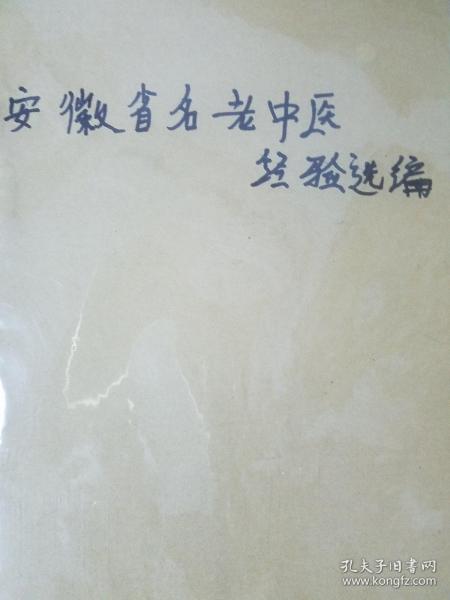 安徽省名老中医
经验选编
孔夫子旧书网
www.kongfz.com